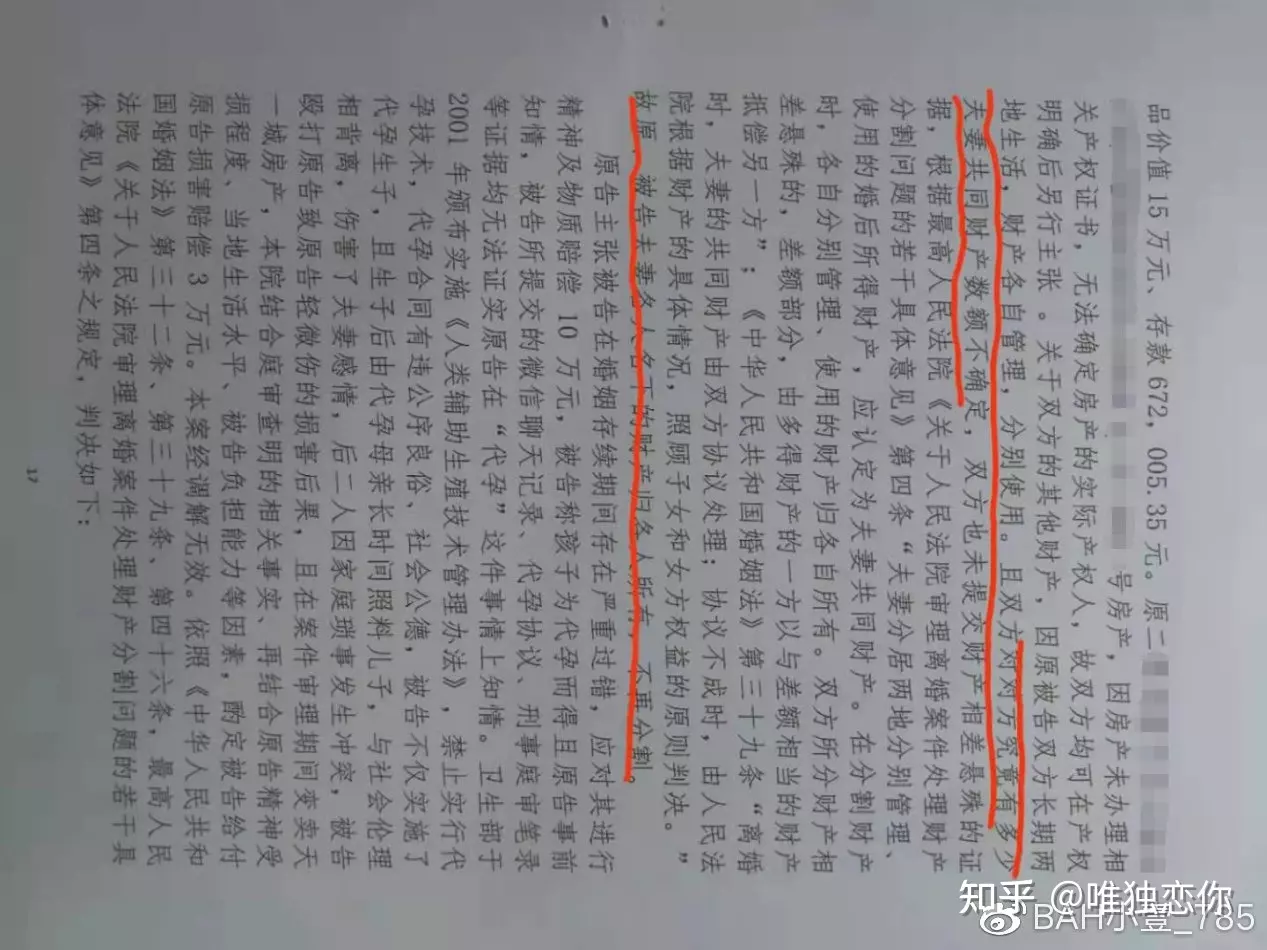 品价值 15 万元、存款 672，005.35 元。原二
号房产，因房产未办理相
关产权证书，无法确定房产的实际产权人，故双方均可在产权
明确后另行主张。关于双方的其他财产，因原被告双方长期两
地生活，财产各自管理，分别使用。且双方对对方究竟有多少
夫妻共同财产数额不确定，双方也未提交财产相差悬殊的证
据，根据最高人民法院《关于人民法院审理离婚案件处理财产
分割问题的若干具体意见》第四条“夫妻分居两地分别管理、
使用的婚后所得财产，应认定为夫妻共同财产。在分割财产
时，各自分别管理、使用的财产归各自所有。双方所分财产相
差悬殊的，差额部分，由多得财产的一方以与差额相当的财产
抵偿另一方”；《中华人民共和国婚姻法》第三十九条“离婚
时，夫妻的共同财产由双方协议处理；协议不成时，由人民法
院根据财产的具体情况，照顾子女和女方权益的原则判决。”
故原、被告夫妻各人名下的财产归各人所有，不再分割。
原告主张被告在婚姻存续期间存在严重过错，应对其进行
精神及物质赔偿 10 万元，被告称孩子为代孕而得且原告事前
知情，被告所提交的微信聊天记录、代孕协议、刑事庭审笔录
等证据均无法证实原告在“代孕”这件事情上知情。卫生部于
2001 年颁布实施《人类辅助生殖技术管理办法》，禁止实行代
孕技术，代孕合同有违公序良俗、社会公德，被告不仅实施了
代孕生子，且生子后由代孕母亲长时间照料儿子，与社会伦理
相背离，伤害了夫妻感情，后二人因家庭琐事发生冲突，被告
殴打原告致原告轻微伤的损害后果，且在案件审理期间变卖天
一城房产，本院结合庭审查明的相关事实、再结合原告精神受
损程度、当地生活水平、被告负担能力等因素，酌定被告给付
原告损害赔偿 3 万元。本案经调解无效。依照《中华人民共和
国婚姻法》第三十二条、第三十九条、第四十六条，最高人民
法院《关于人民法院审理离婚案件处理财产分割问题的若干具
体意见》第四条之规定，判决如下：
17
知乎 @唯独恋你
@BAH小壹_785